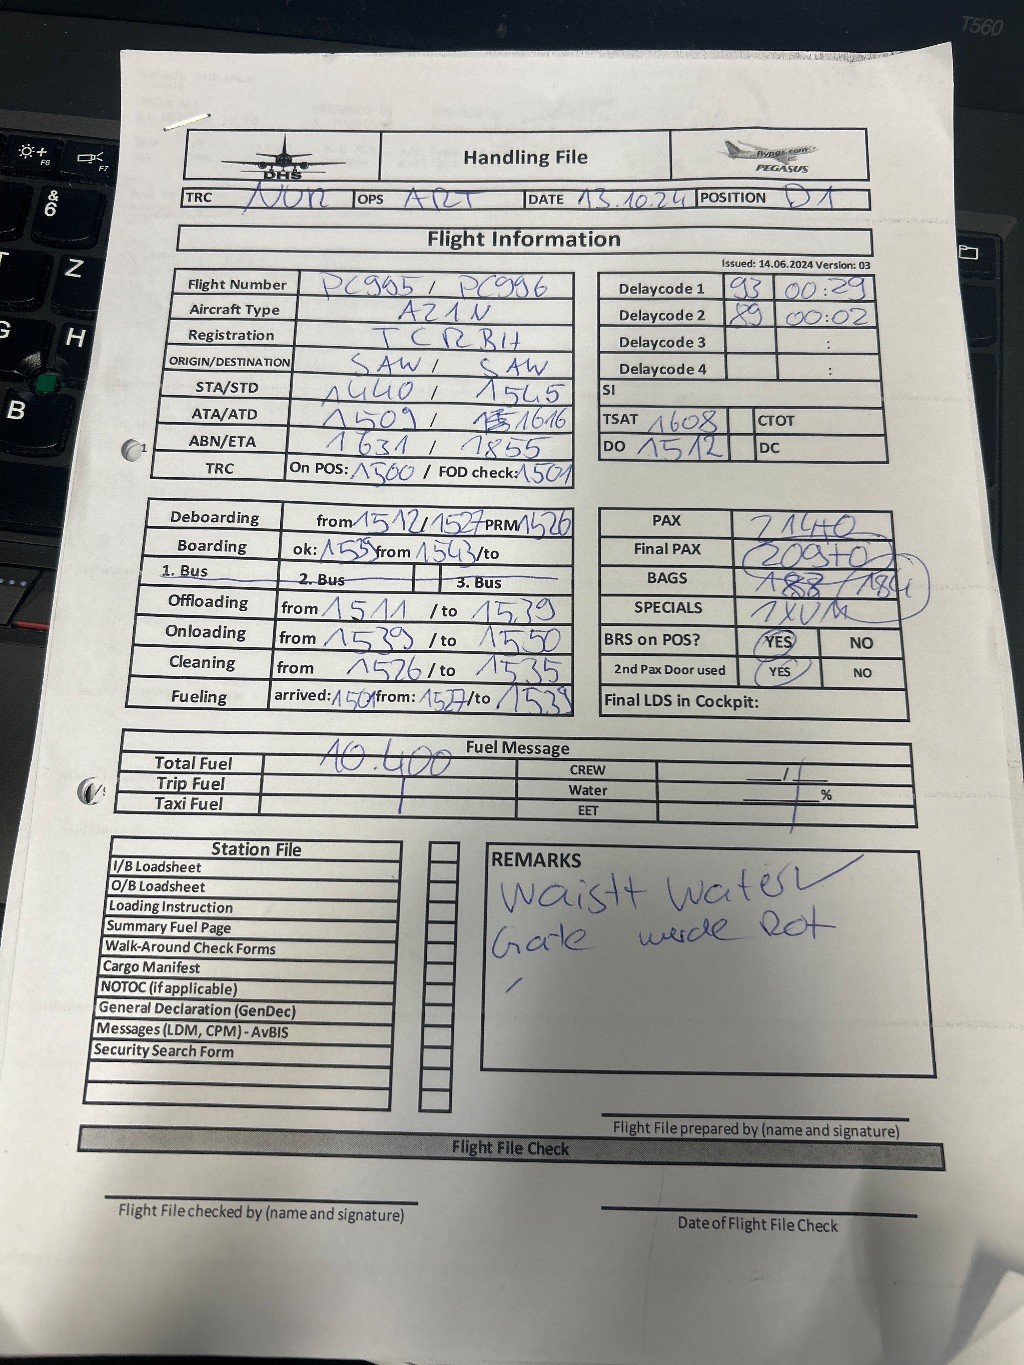 T560
DHS
Handling File
flypgs.com
PEGASUS
TRC NUR OPS ART DATE 13.10.24 POSITION D1
Flight Information
Issued: 14.06.2024 Version: 03
Flight Number PC995 / PC996
Aircraft Type A21N
Registration TCRBH
ORIGIN/DESTINATION SAW / SAW
STA/STD 1440 / 1545
ATA/ATD 1509 / 1616
ABN/ETA 1631 / 1855
TRC On POS: 1500 / FOD check: 1501
Delaycode 1 93 00:29
Delaycode 2 89 00:02
Delaycode 3 :
Delaycode 4 :
SI
TSAT 1608 CTOT
DO 1512 DC
Deboarding from 1512/1527 PRM 1526
Boarding ok: 1539 from 1543/to
1. Bus 2. Bus 3. Bus
Offloading from 1511 / to 1539
Onloading from 1539 / to 1550
Cleaning from 1526 / to 1535
Fueling arrived: 1501 from: 1527/to 1539
PAX 214+0
Final PAX 209+0
BAGS 188 / 184
SPECIALS 1XUM
BRS on POS? YES NO
2nd Pax Door used YES NO
Final LDS in Cockpit:
Fuel Message
Total Fuel 10.400 CREW /
Trip Fuel Water %
Taxi Fuel EET
Station File
I/B Loadsheet
O/B Loadsheet
Loading Instruction
Summary Fuel Page
Walk-Around Check Forms
Cargo Manifest
NOTOC (if applicable)
General Declaration (GenDec)
Messages (LDM, CPM) - AvBIS
Security Search Form
REMARKS
Waistt Water ✓
Gate wurde Rot
Flight File prepared by (name and signature)
Flight File Check
Flight File checked by (name and signature)
Date of Flight File Check
F6
F7
&
6
Z
G
H
B